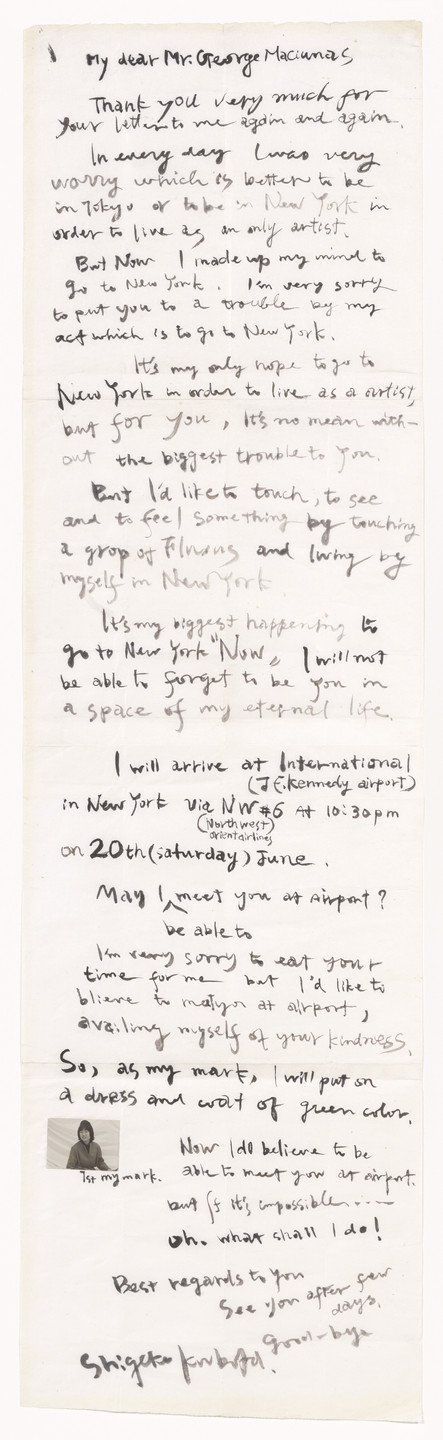 My dear Mr. George Maciunas
Thank you very much for
your letter to me again and again.
In every day I was very
worry which is better to be
in Tokyo or to be in New York in
order to live as an only artist.
But Now I made up my mind to
go to New York. I'm very sorry
to put you to a trouble by my
act which is to go to New York.
It's my only hope to go to
New York in order to live as a artist,
but for you, It's no mean with-
out the biggest trouble to you.
But I'd like to touch, to see
and to feel something by touching
a grop of Fluxus and living by
myself in New York.
It's my biggest happening to
go to New York "Now" I will not
be able to forget to be you in
a space of my eternal life.
I will arrive at International
(J F. Kennedy airport)
in New York via NW #6 At 10:30pm
(North west
orient airlines)
on 20th (saturday) June.
May I meet you at airport?
be able to
I'm very sorry to eat your
time for me but I'd like to
blieve to meet you at airport,
availing myself of your kindness.
So, as my mark, I will put on
a dress and coat of green color.
1st my mark.
Now I do believe to be
able to meet you at airport.
but if it's impossible----
oh. what shall I do!
Best regards to you
See you after few
days.
Good-bye
Shigeko Kubota.